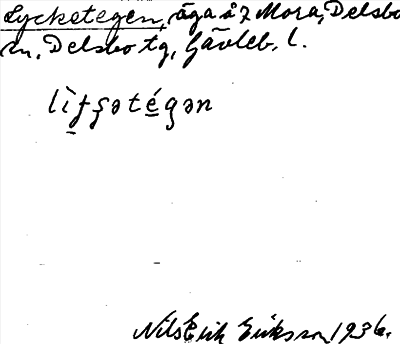 Lycketegen, äga å 7 Mora, Delsbo
sn, Delsbo tg, Gävleb. l.
lìt̠ʂətég̠ən
Nils Erik Eriksson 1936.